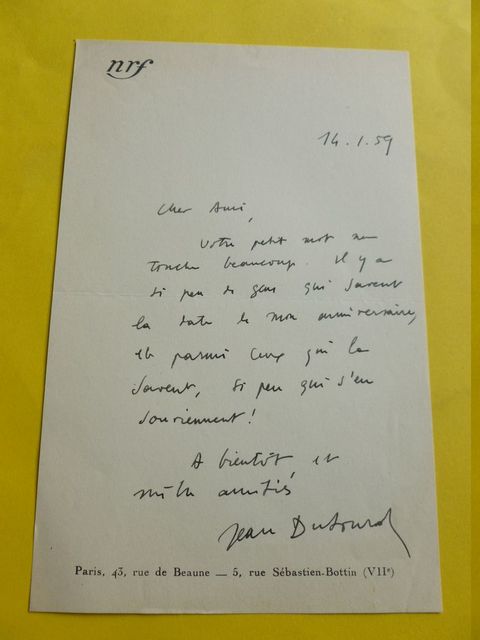 nrf
14.1.59
Cher Ami,
Votre petit mot me
touche beaucoup. Il y a
si peu de gens qui savent
la date de mon anniversaire,
et parmi ceux qui la
savent, si peu qui s'en
souviennent !
A bientôt, et
mille amitiés
Jean Dutourd
Paris, 43, rue de Beaune — 5, rue Sébastien-Bottin (VIIe)